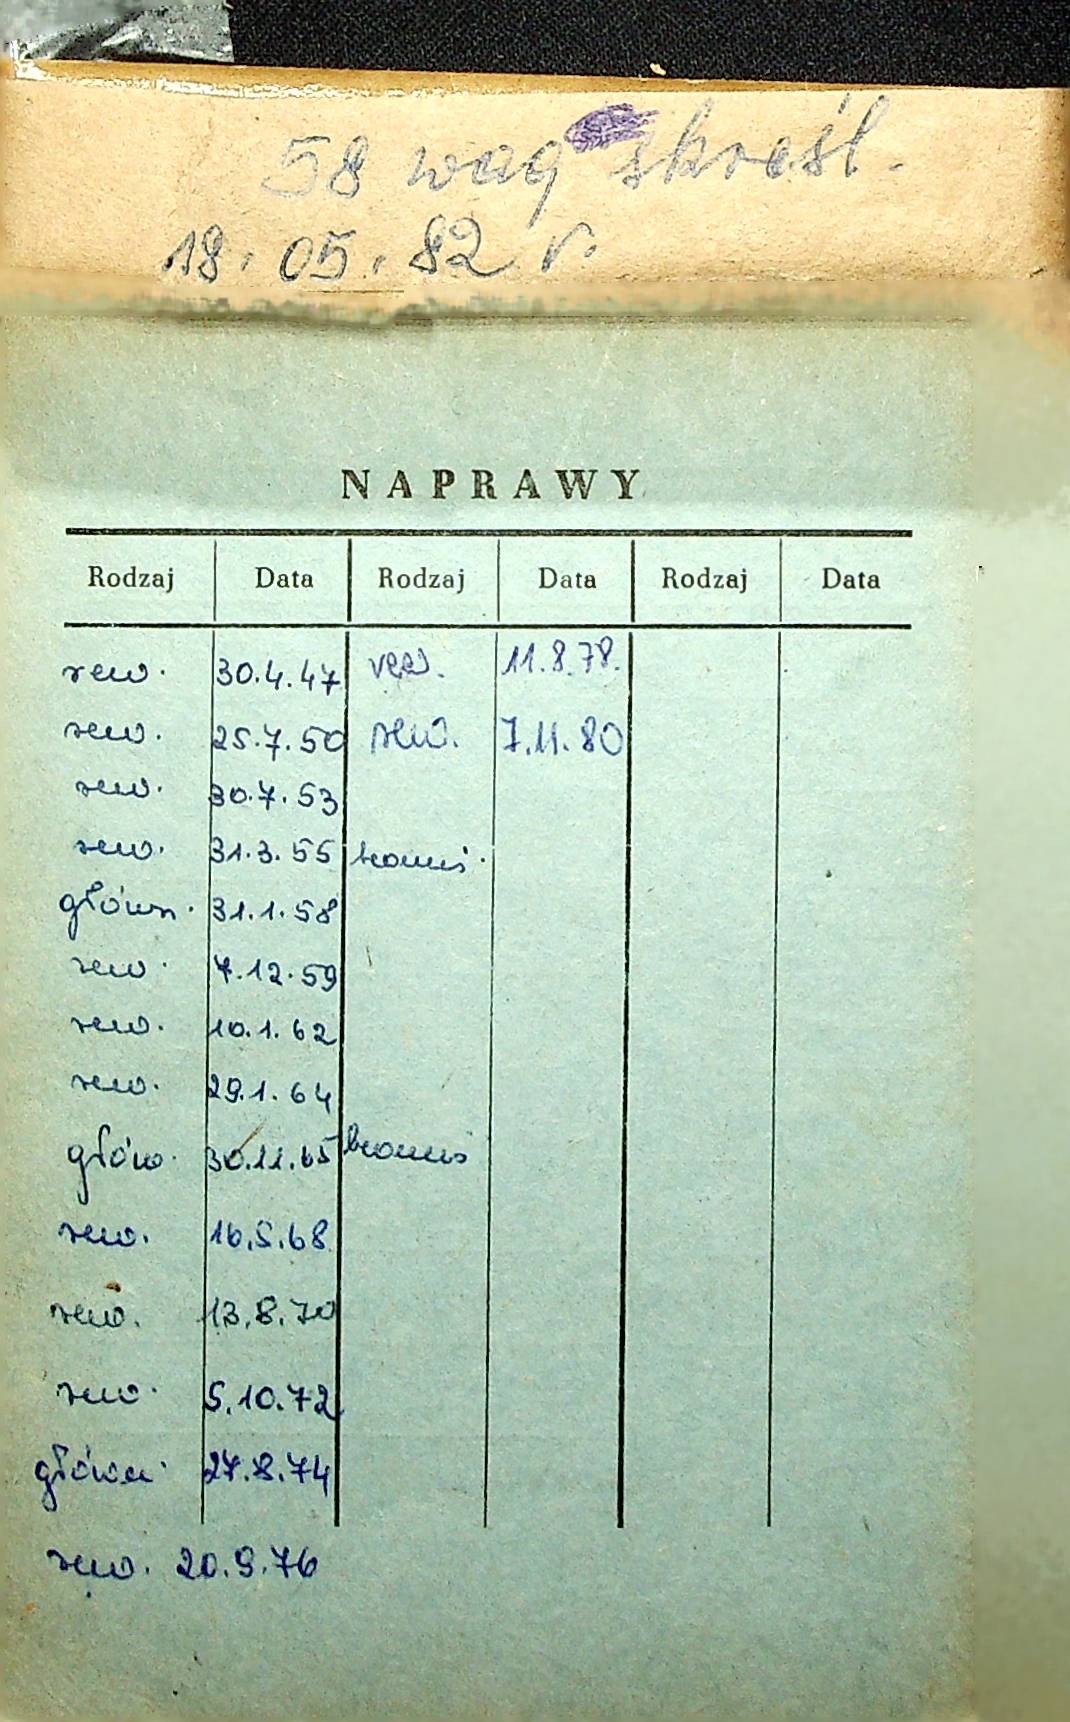 58 wag skreśl.
18.05.82 r.
NAPRAWY
Rodzaj Data Rodzaj Data Rodzaj Data
rew. 30.4.47 rew. 11.8.78.
rew. 25.7.50 rew. 7.11.80
rew. 30.7.53
rew. 31.3.55
główn. 31.1.58
rew. 7.12.59
rew. 10.1.62
rew. 29.1.64
głów. 30.11.65
rew. 16.5.68
rew. 13.8.70
rew. 5.10.72
główn. 27.8.74
rew. 20.9.76